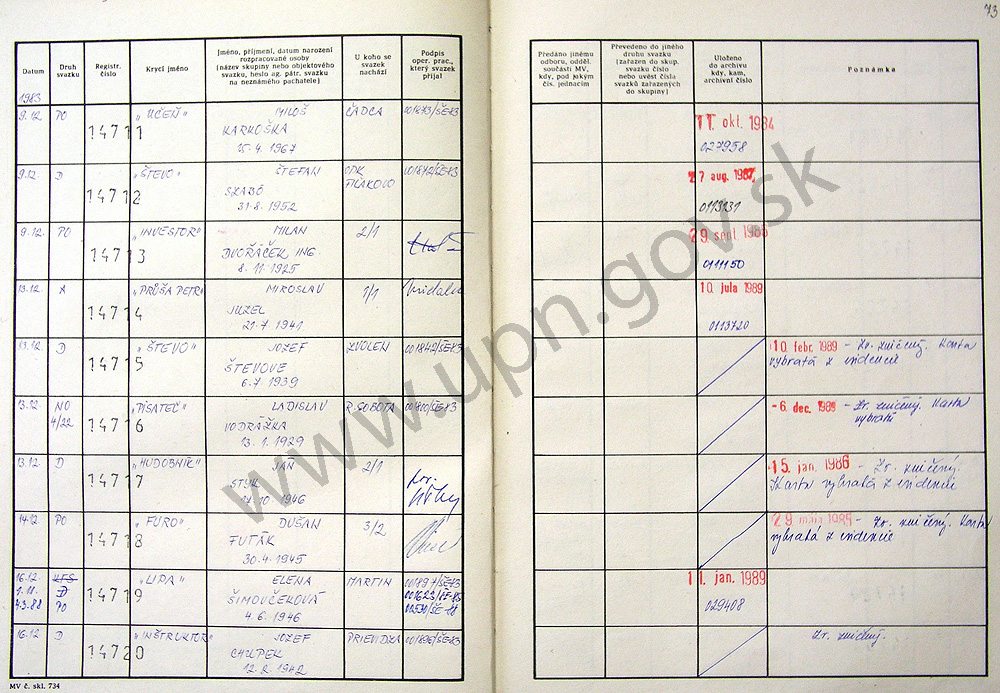 73
Datum
Druh
svazku
Registr.
číslo
Krycí jméno
Jméno, příjmení, datum narození
rozpracované osoby
(název skupiny nebo objektového
svazku, heslo ag. pátr. svazku
na neznámého pachatele)
U koho se
svazek
nachází
Podpis
oper. prac.,
který svazek
přijal
Předáno jinému
odboru, odděl.
součásti MV,
kdy, pod jakým
čís. jednacím
Převedeno do jiného
druhu svazku
(zařazen do skup.
svazku číslo
nebo uvést čísla
svazků zařazených
do skupiny)
Uloženo
do archivu
kdy, kam,
archivní číslo
Poznámka
1983
9.12. PO 14711 "UČEŇ" MILOŠ ČADCA 001873/ŠEK3
KARKOŠKA
15.4.1967
11. okt. 1984
027958
9.12. D 14712 "ŠTEVO" ŠTEFAN ODK
SZABÓ FIĽAKOVO
31.8.1952
27 aug. 1987
0113131
9.12. PO 14713 "INVESTOR" MILAN 2/1
DVOŘÁČEK ING.
8.11.1925
29 sept. 1986
0111150
13.12 A 14714 "PRŮŠA PETR" MIROSLAV 1/1
JUZEL
21.7.1941
10 júla 1989
0113720
13.12. D 14715 "ŠTEVO" JOZEF ZVOLEN 001842/ŠEK3
ŠTEVOVE
6.7.1939
10. febr. 1989 - Zv. zničený. Karta
vybratá z evidencie
13.12 NO 14716 "PISATEĽ" LADISLAV R. SOBOTA
4/22 VODRÁŽKA
13.1.1929
-6. dec. 1989 - Zv. zničený. Karta
vybratá
13.12. D 14717 "HUDOBNÍK" JÁN 2/1
1946
15. jan. 1986 - Zv. zničený.
Karta vybratá z evidencie
14.12. PO 14718 "FURO" DUŠAN 3/2
FUTÁK
30.4.1945
Zv. zničený. Karta
vybratá z evidencie
16.12. 14719 "LIPA" ELENA MARTIN
D ŠIMOVČEKOVÁ
4.3.88 PO 4.6.1946
11. jan. 1989
029408
16.12 D 14720 "INŠTRUKTOR" JOZEF PRIEVIDZA 001896/ŠEK3
CHUPEK
12.2.1942
Zv. zničený.
MV č. skl. 734
www.upn.gov.sk